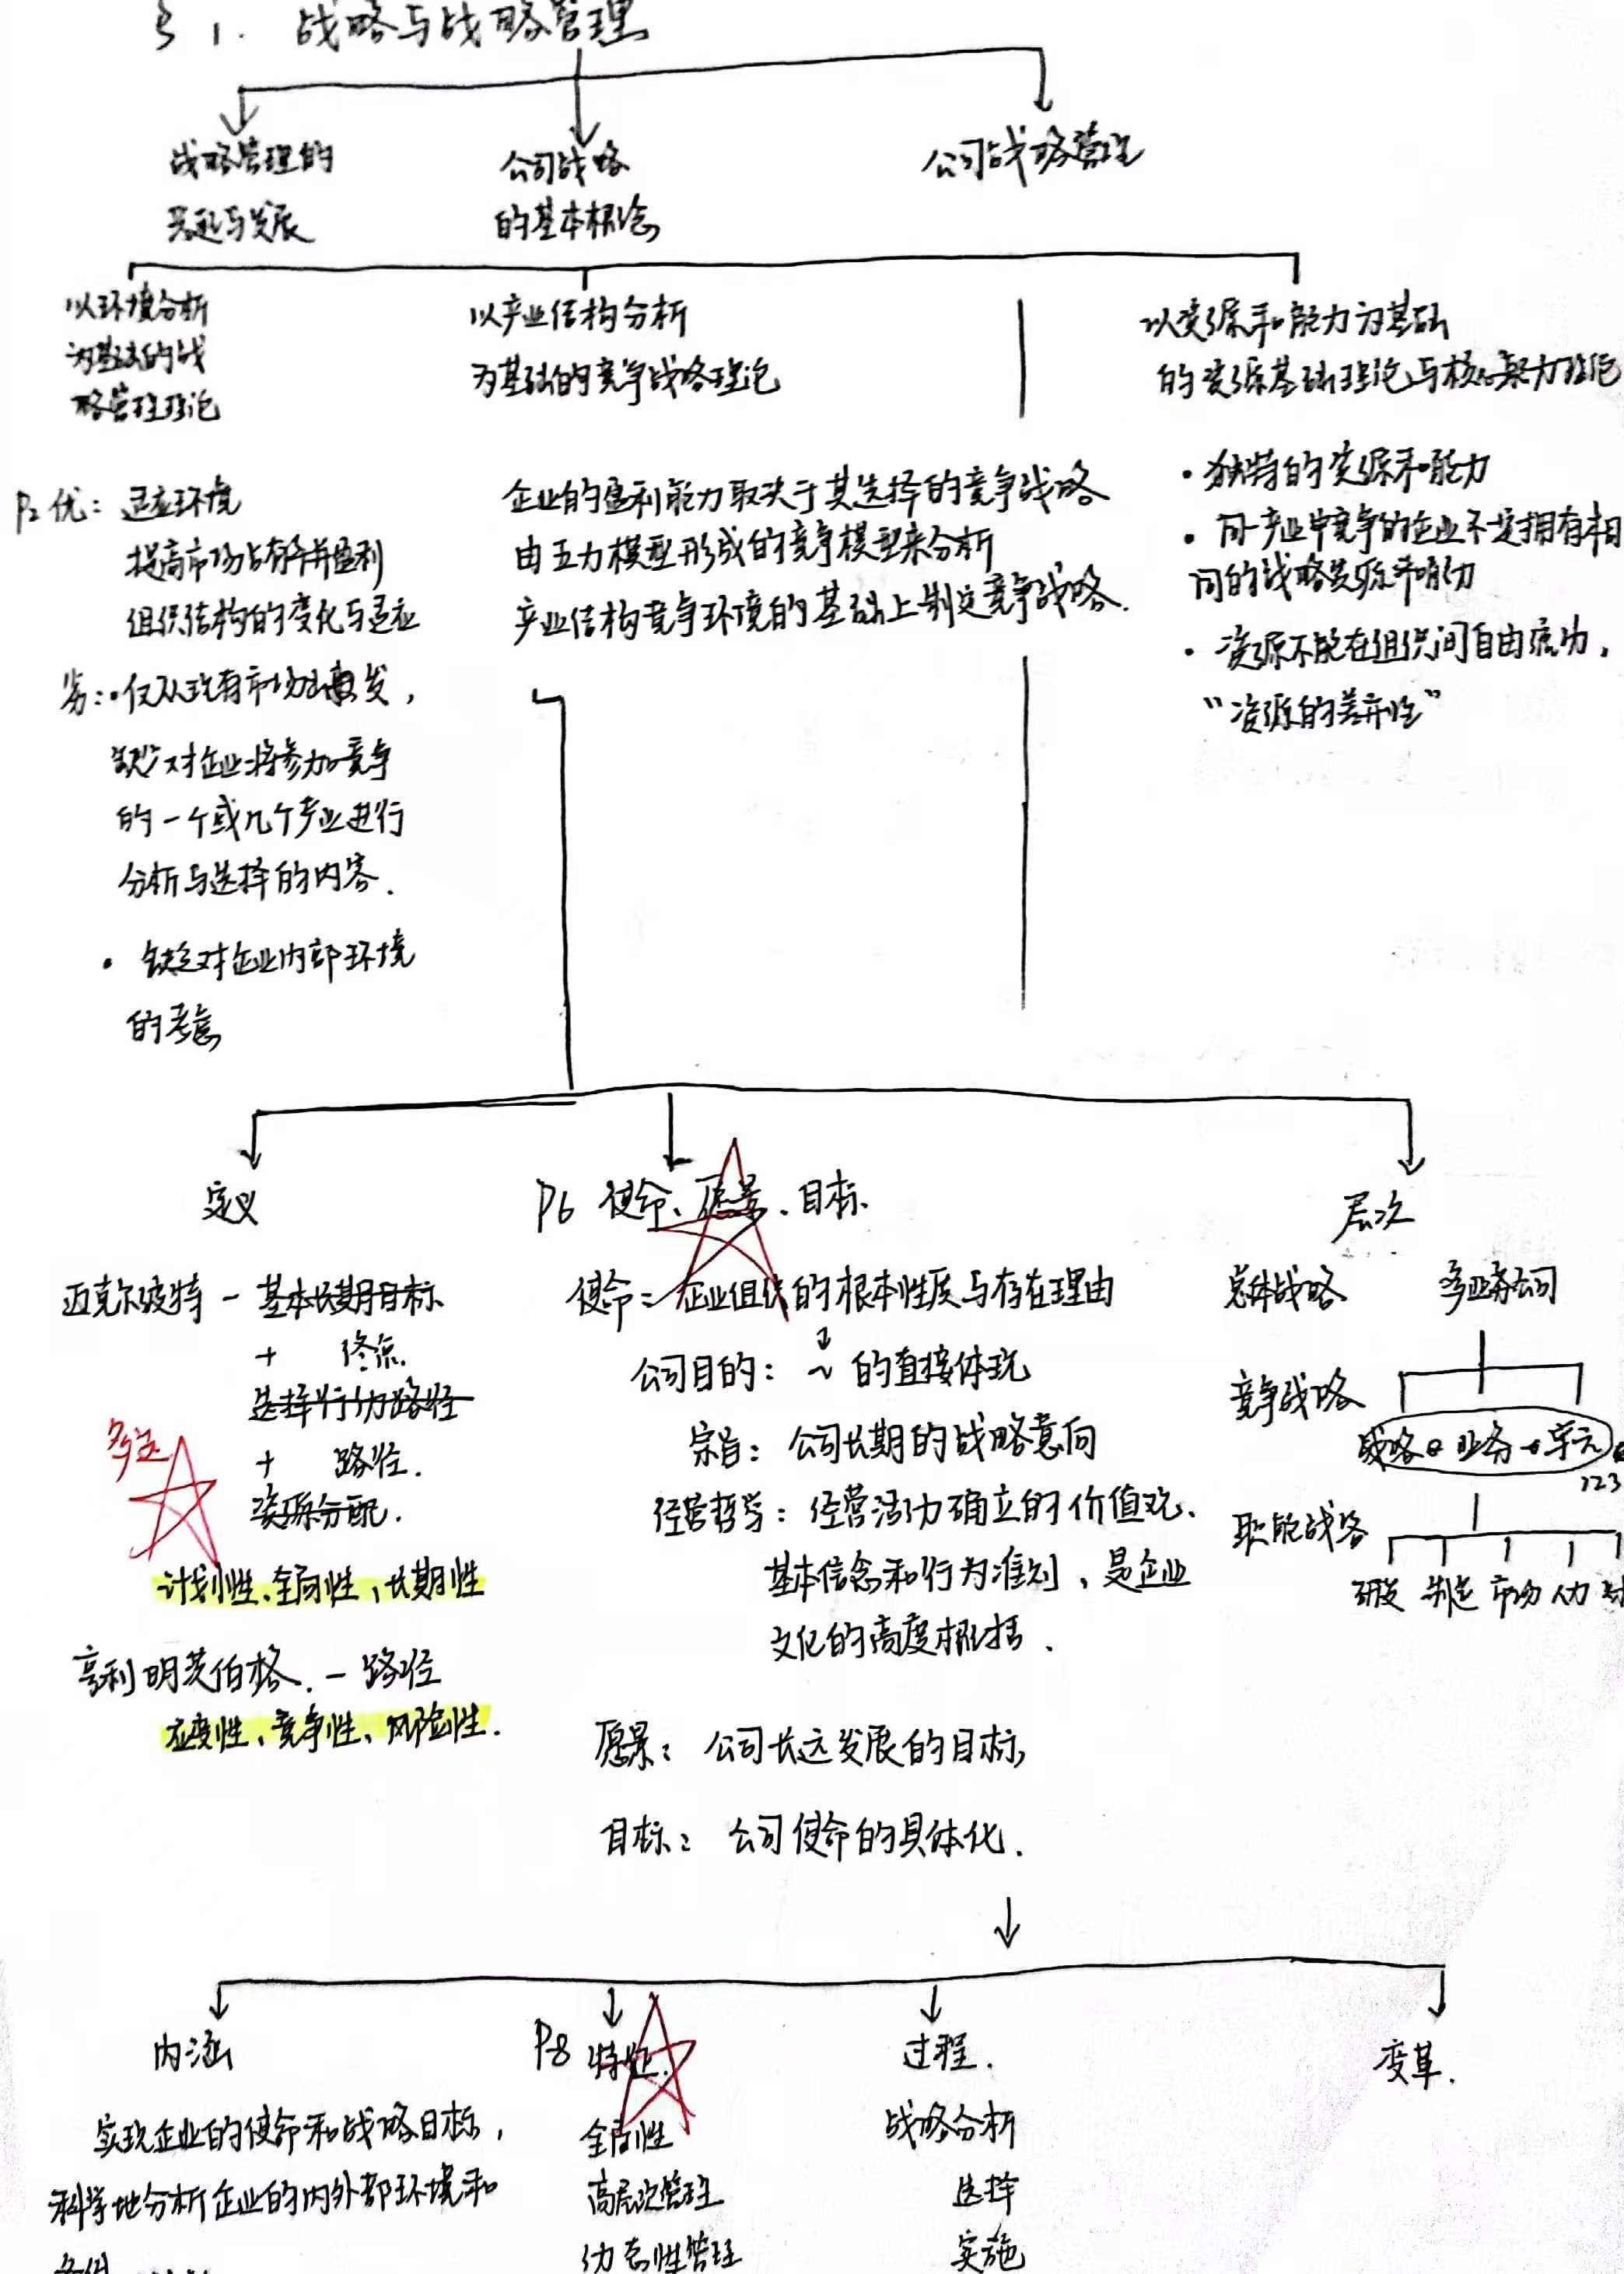 §1. 战略与战略管理
战略管理的
兴起与发展
公司战略
的基本概念
公司战略管理
以环境分析
为基础的战
略管理理论
以产业结构分析
为基础的竞争战略理论
以资源和能力为基础
的资源基础理论与核心能力理论
P2 优：适应环境
提高市场占有率并盈利
组织结构的变化与适应
劣：·仅从现有市场出发，
缺少对企业将参加竞争
的一个或几个产业进行
分析与选择的内容.
· 缺乏对企业内部环境
的考虑
企业的盈利能力取决于其选择的竞争战略
由五力模型形成的竞争模型来分析
产业结构竞争环境的基础上制定竞争战略.
· 独特的资源和能力
· 同产业中竞争的企业不一定拥有相
同的战略资源和能力
· 资源不能在组织间自由流动，
“资源的差异性”
定义
迈克尔波特 - 基本长期目标
+ 终点.
选择行动路径
+ 路径.
资源分配.
多选
计划性、全局性、长期性
亨利明茨伯格. - 路径
应变性、竞争性、风险性.
P6 使命、愿景、目标.
使命：企业组织的根本性质与存在理由
公司目的：~ 的直接体现
宗旨：公司长期的战略意向
经营哲学：经营活动确立的价值观、
基本信念和行为准则，是企业
文化的高度概括.
愿景：公司长远发展的目标，
目标：公司使命的具体化.
层次
总体战略 多业务公司
竞争战略
战略 业务 单元
123
职能战略
研发 制造 市场 人力 财
内涵
实现企业的使命和战略目标，
科学地分析企业的内外部环境和
条件
P8 特征.
全局性
高层次管理
动态性管理
过程.
战略分析
选择
实施
变革.